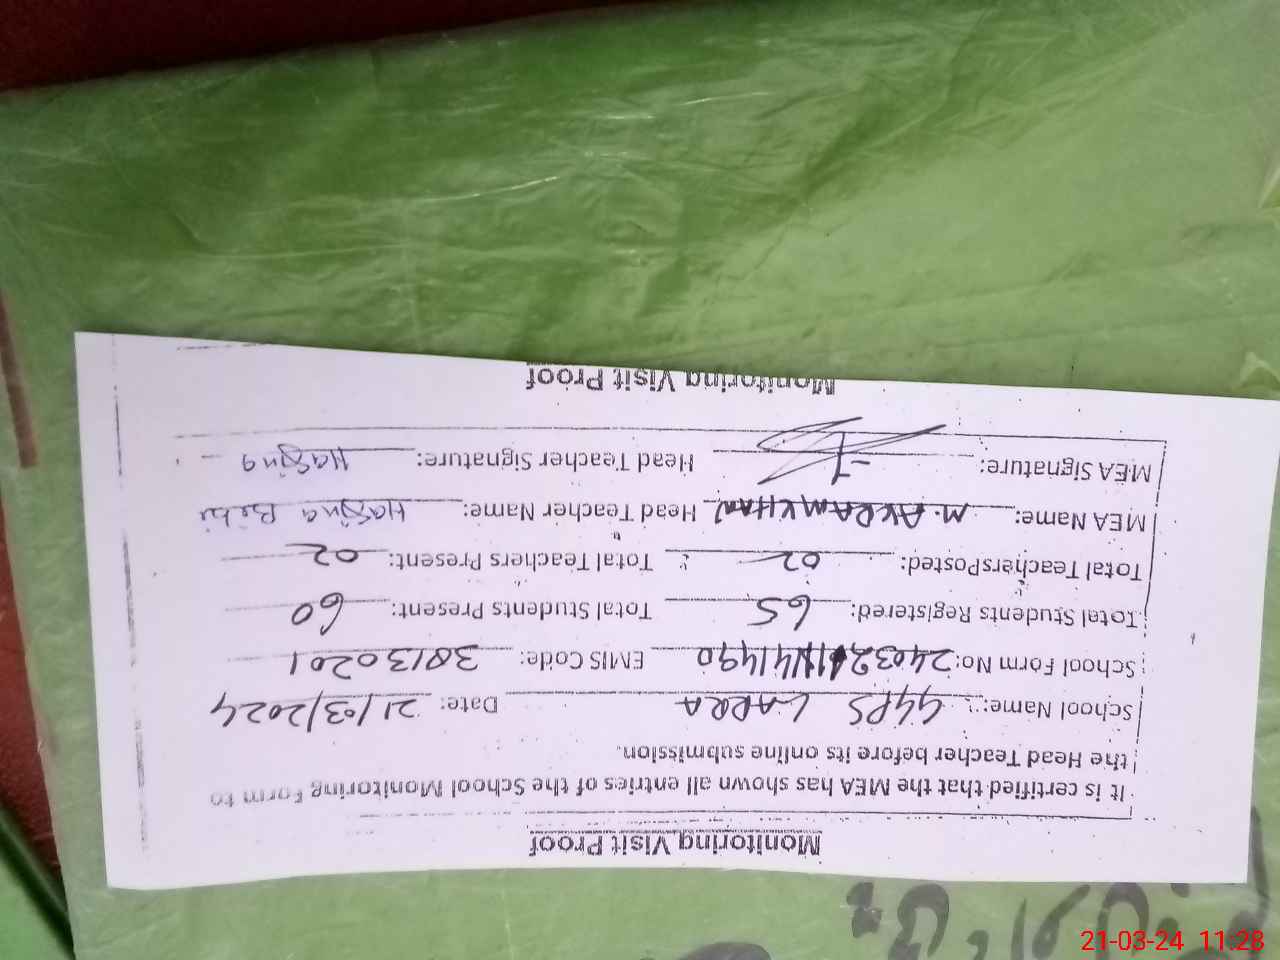 Monitoring Visit Proof
It is certified that the MEA has shown all entries of the School Monitoring Form to
the Head Teacher before its online submission.
School Name: GGPS LARRA Date: 21/03/2024
School Form No: EMIS Code: 38130201
Total Students Registered: 65 Total Students Present: 60
Total TeachersPosted: 02 Total Teachers Present: 02
MEA Name: M. AKRAM KHAN Head Teacher Name: Hasina Bibi
MEA Signature: Head Teacher Signature: Hasina
Monitoring Visit Proof
21-03-24 11:28